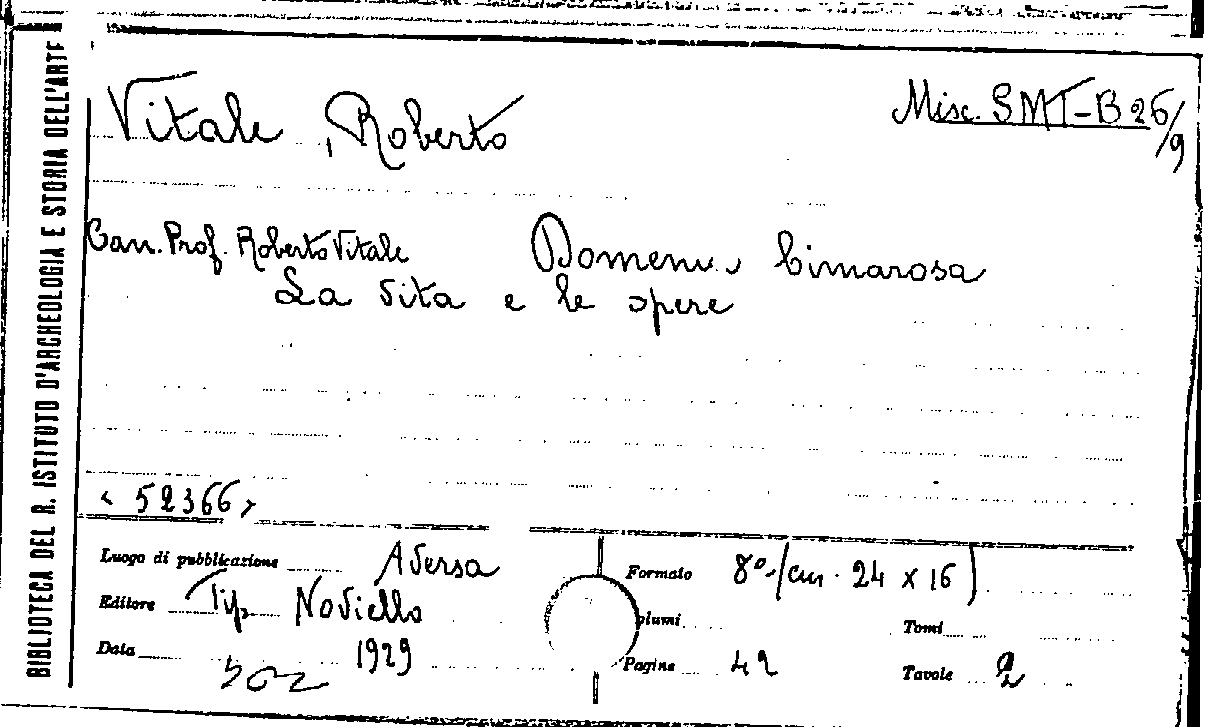 BIBLIOTECA DEL R. ISTITUTO D'ARCHEOLOGIA E STORIA DELL'ARTE
Vitale, Roberto
Misc. SMT-B 26/9
Can. Prof. Roberto Vitale Domenico Cimarosa
La vita e le opere
< 52366 >
Luogo di pubblicazione Aversa
Formato 8° (cm. 24 x 16)
Editore Tip. Noviello
Volumi
Tomi
Data 1929
Pagine 42
Tavole 2